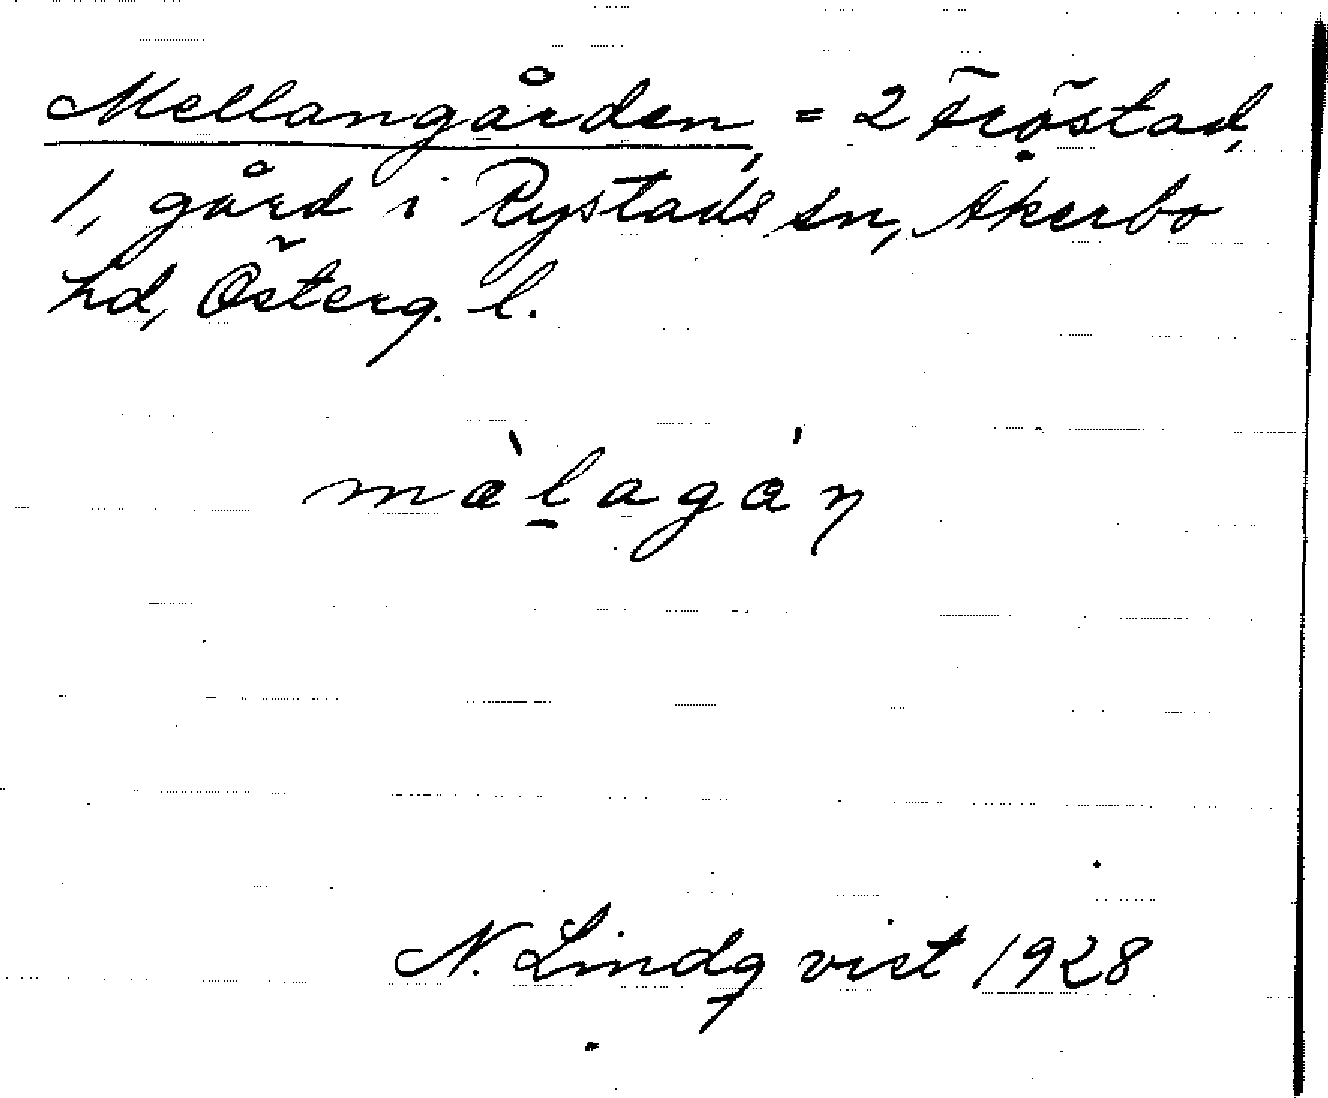 Mellangården, = 2 Fröstad,
1, gård i Rystads sn, Åkerbo
hd, Österg. l.
màḻagáŋ
N. Lindqvist 1928